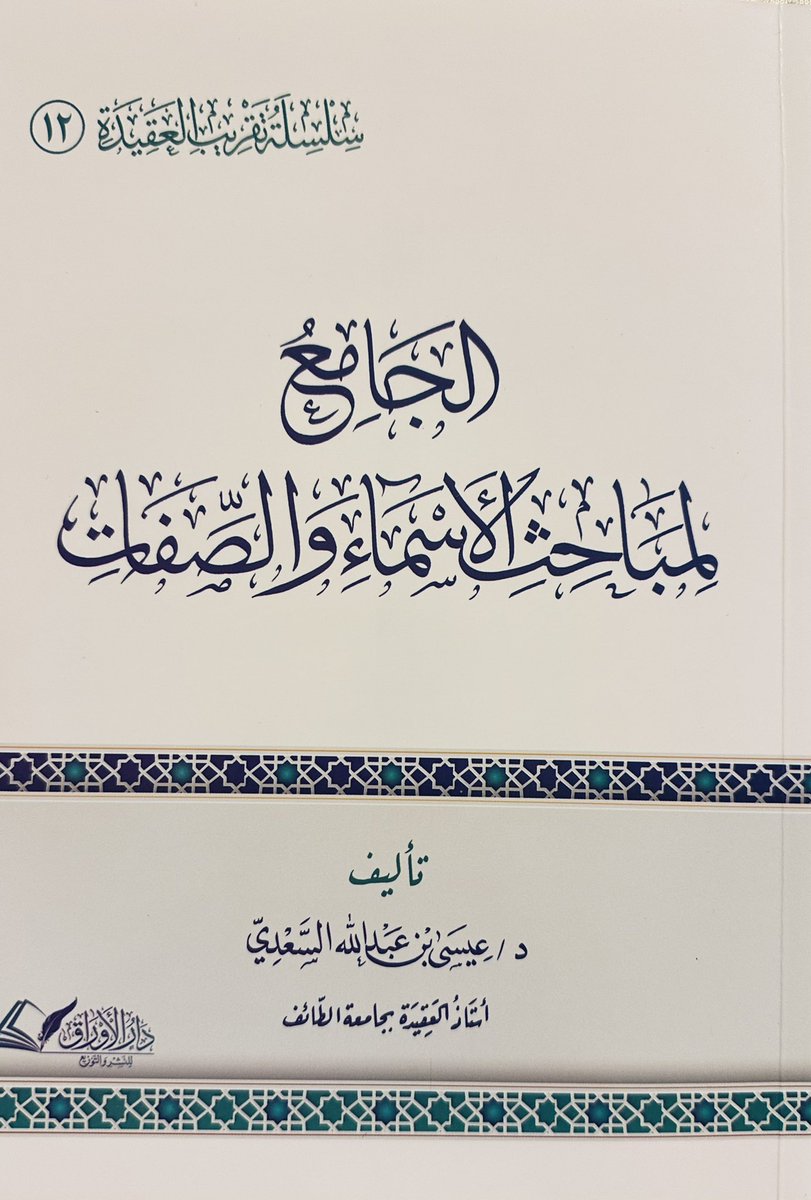 سِلْسِلَةُ تَقْرِيبِ العَقِيدَةِ ١٢
الجَامِعُ
لِمَبَاحِثِ الأَسْمَاءِ وَالصِّفَاتِ
تأليف
د/ عِيسَى بْن عَبْد الله السَّعْدِيّ
أستاذُ العَقِيدَة بجامعة الطّائف
دَارُ الأَوْرَاق
لِلنَّشْرِ وَالتَّوْزِيع